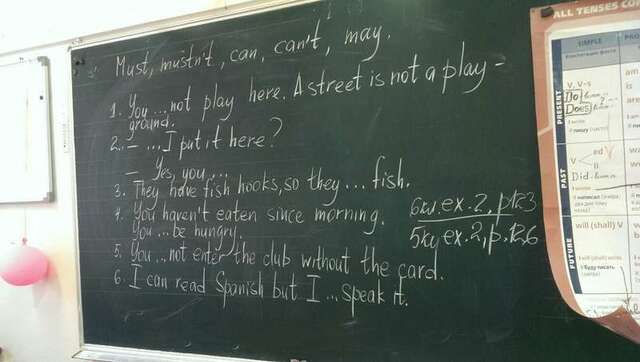 Must, mustn't, can, can't, may.
1. You...not play here. A street is not a play-
ground.
2. – ...I put it here?
– Yes, you...
3. They have fish hooks, so they...fish.
4. You haven't eaten since morning.
You...be hungry.
5. You...not enter the club without the card.
6. I can read Spanish but I...speak it.
ex. 2, p. 123
ex. 2, p. 126
ALL TENSES
SIMPLE
PRESENT
V, V-s
Do
Does
I write
PAST
V
ed
II
Did
I wrote
FUTURE
will (shall) V
I will (shall) write
am
is
are
will